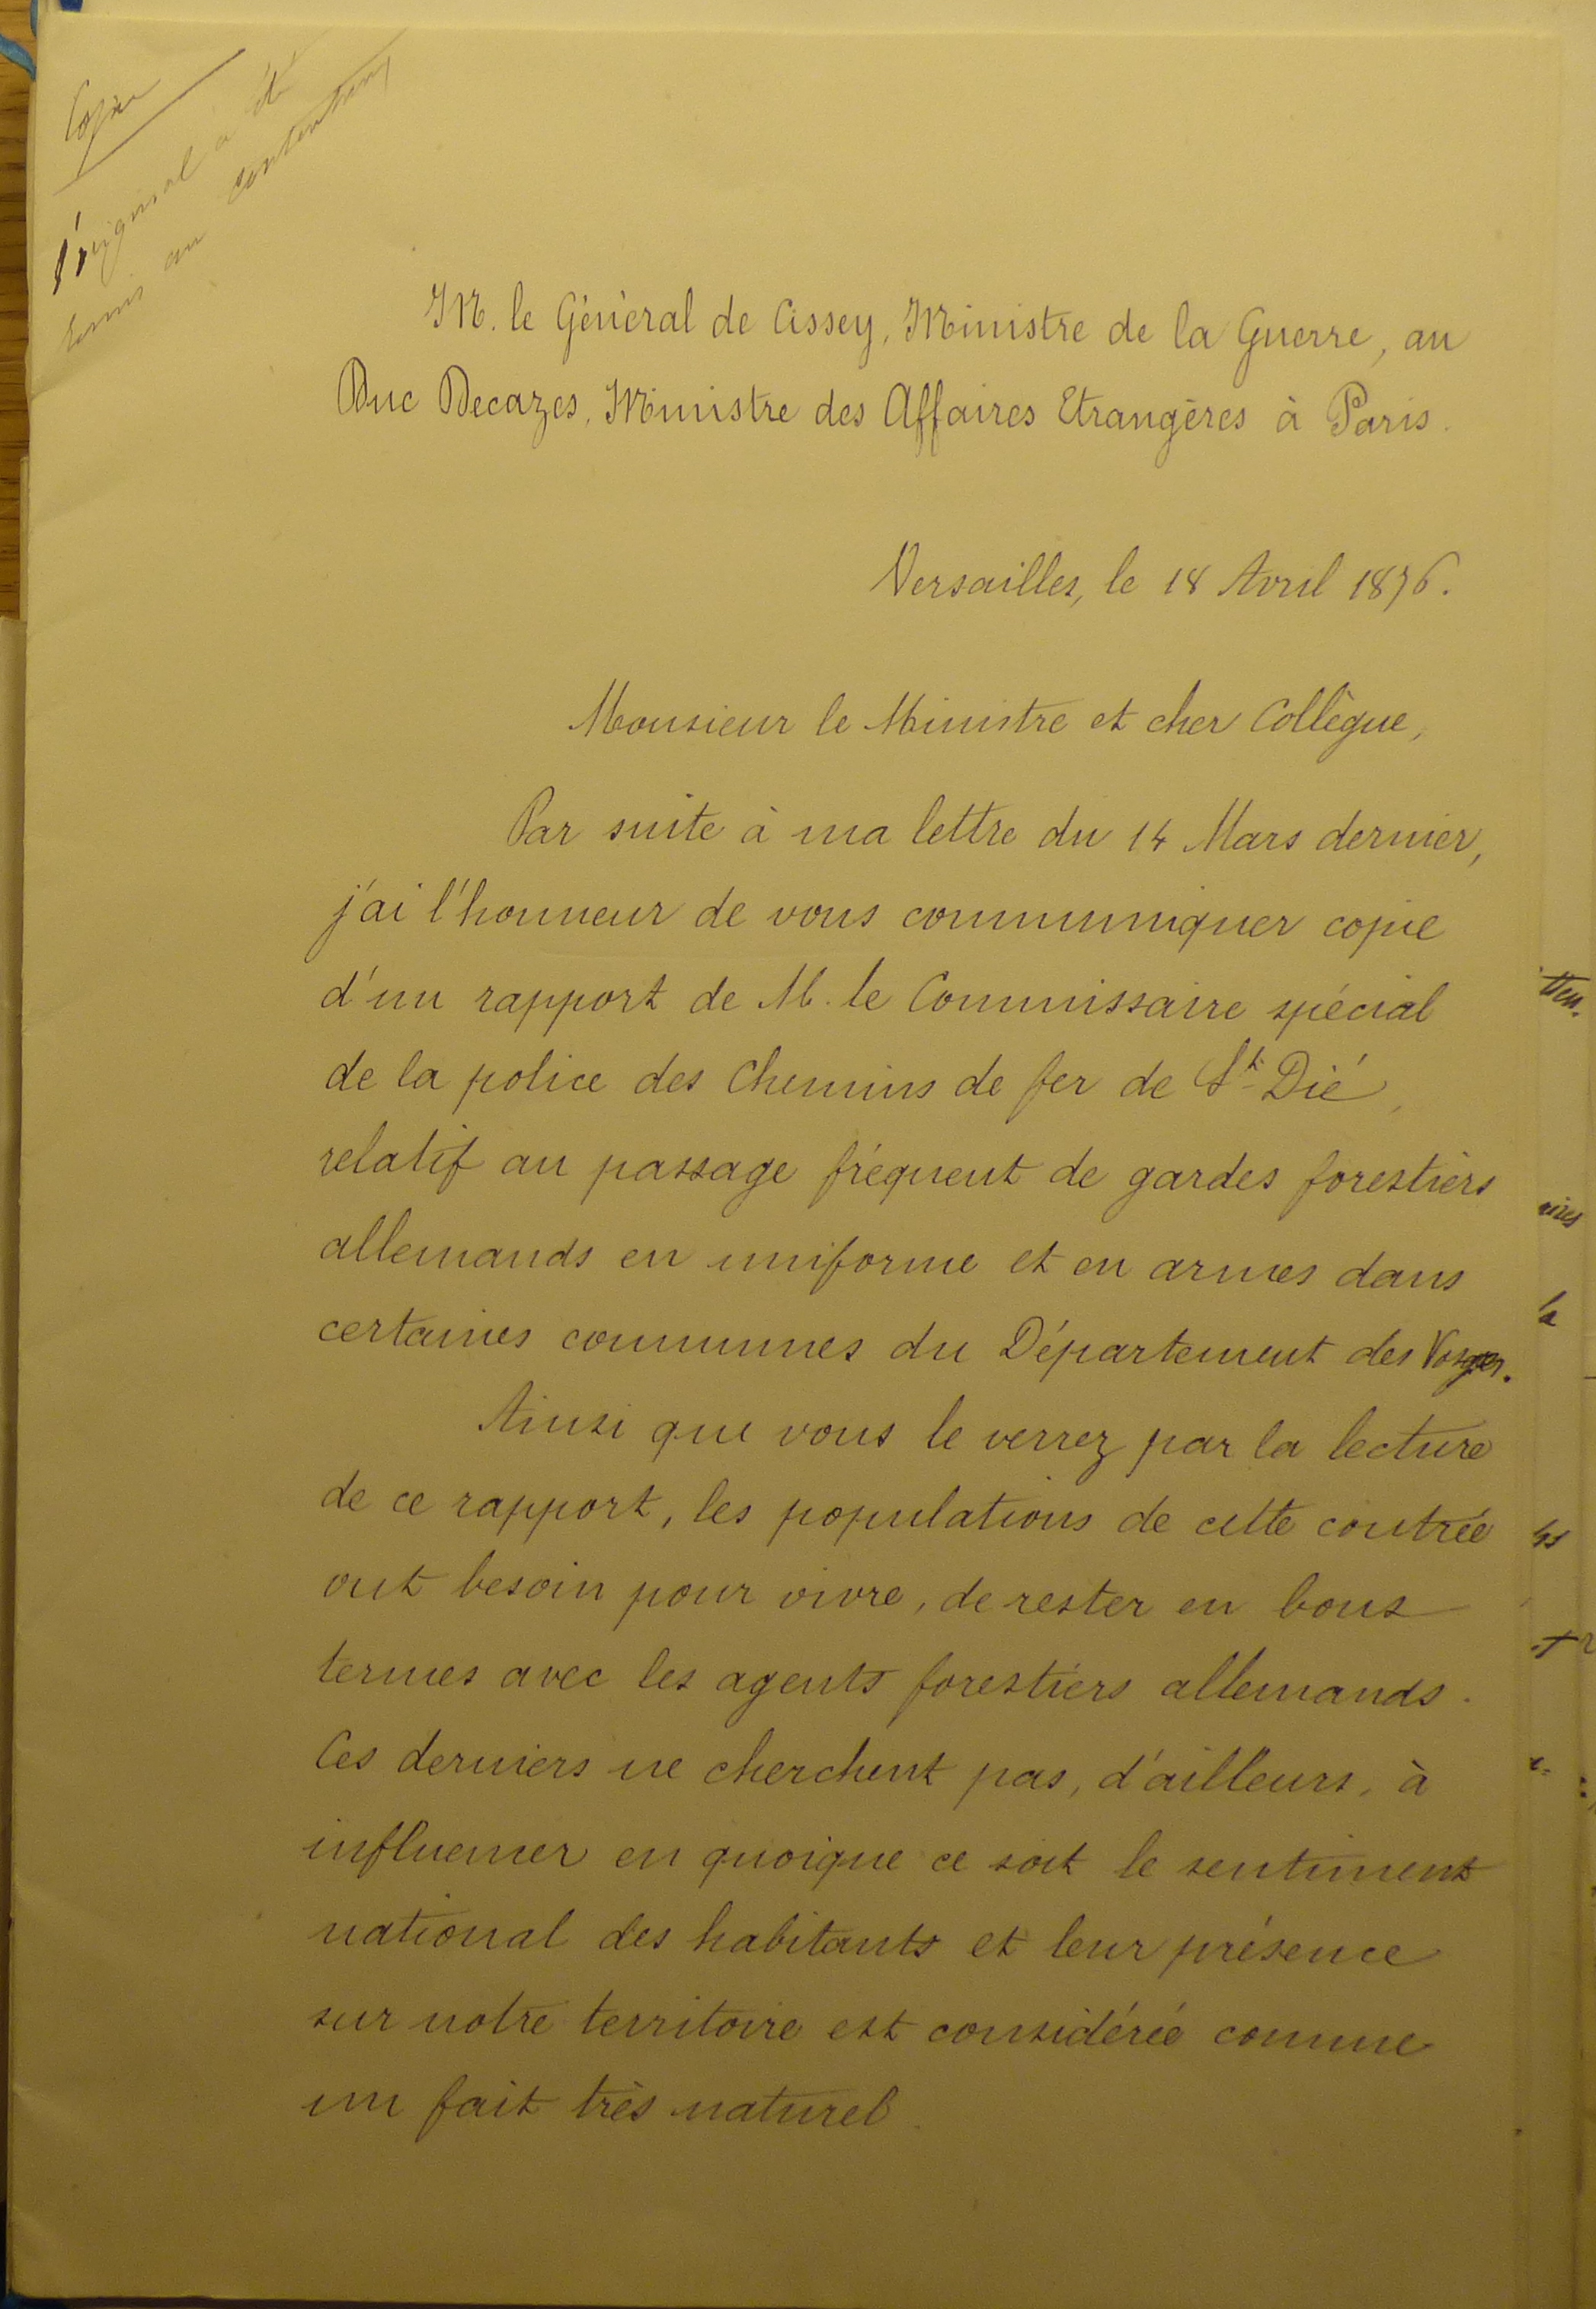 Copie
l'original a été
remis au contentieux
M. le Général de Cissey, Ministre de la Guerre, au
Duc Decazes, Ministre des Affaires Etrangères à Paris.
Versailles, le 18 Avril 1876.
Monsieur le Ministre et cher Collègue,
Par suite à ma lettre du 14 Mars dernier,
j'ai l'honneur de vous communiquer copie
d'un rapport de M. le Commissaire spécial
de la police des Chemins de fer de St Dié,
relatif au passage fréquent de gardes forestiers
allemands en uniforme et en armes dans
certaines communes du Département des Vosges.
Ainsi que vous le verrez par la lecture
de ce rapport, les populations de cette contrée
ont besoin pour vivre, de rester en bons
termes avec les agents forestiers allemands.
Ces derniers ne cherchent pas, d'ailleurs, à
influencer en quoique ce soit le sentiment
national des habitants et leur présence
sur notre territoire est considérée comme
un fait très naturel.
la